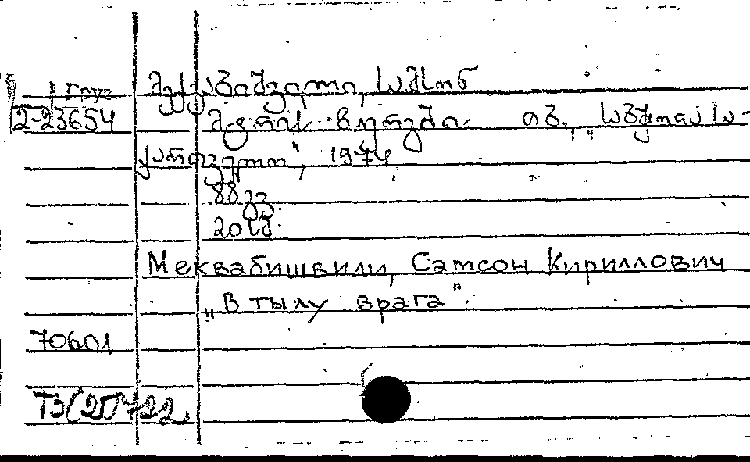 груз
მექვაბიშვილი, სამსონ
2-23654
მტრის ზურგში. თბ., „საბჭოთა სა-
ქართველო", 1974
88 გვ.
20 სმ.
Меквабишвили, Самсон Кириллович
„В тылу врага".
70601